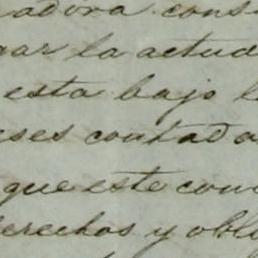 adora cons
gar la actud
esta bajo l
eses contada
que este con
derechos y obli